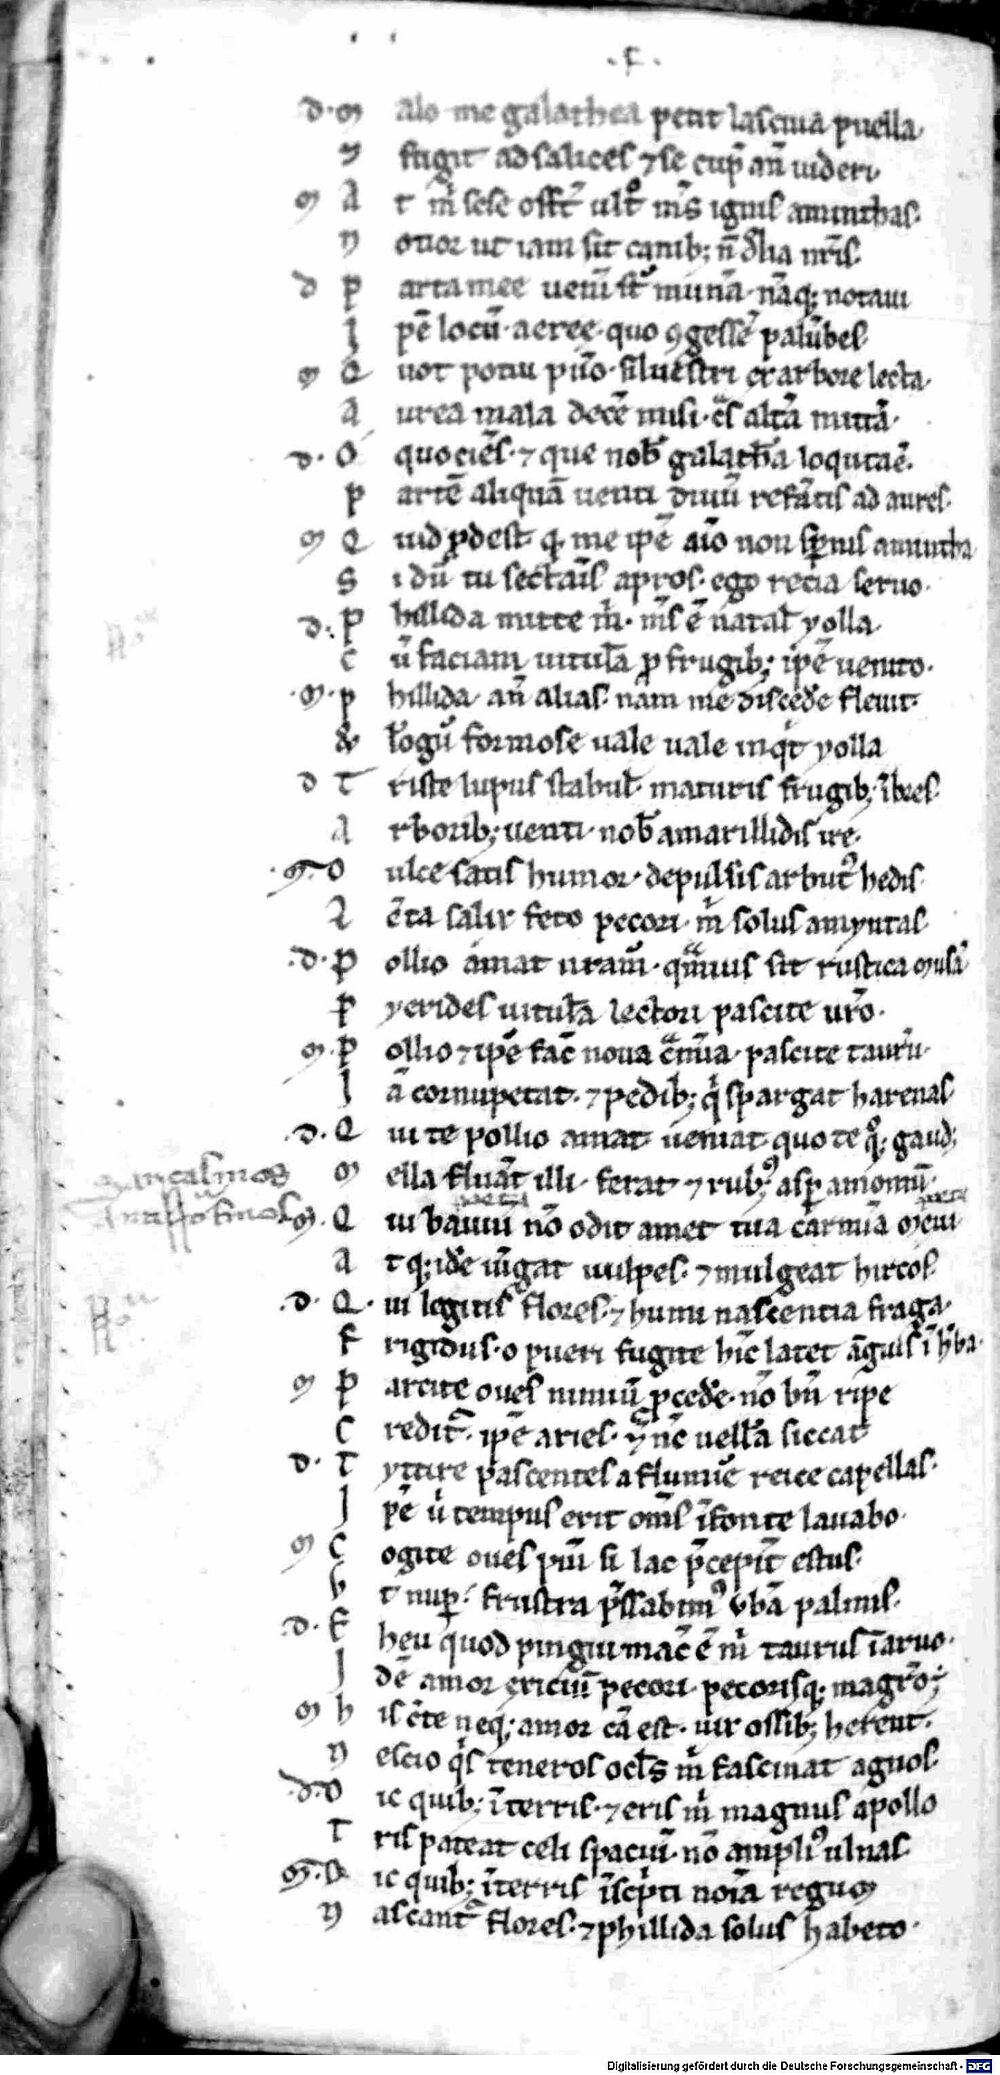 .F.
d. m alo me galathea petit lasciua puella.
& fugit ad salices ⁊ se cup̄ an̄ uideri.
m A t m̄ sese offert̄ ult° m̄s ignis aminthas.
N otior ut iam sit canib; n̄ dl̄ia nr̄is.
d P arta mee uen̄i st̄ mun̄a. nāq; notaui
I pē locū. aeree. quo ꝯgessē palūbes.
m Q uot potui pūo. siluestri ex arbore lecta.
A urea mala decē misi. c̄s altā mittā.
d. O quociēs. ⁊ que nob̄ galath̄a loquta ē.
P artē aliquā uenti diuū refātis ad aures.
m Q uid ꝓdest q̄ me ipē aīo non sp̄nis amintha
S i dū tu sectāis apros. ego recia seruo.
d. P hillida mitte m̄. m̄s ē natal̄ yolla.
C ū faciam uitul̄a ꝓ frugib; ipē uenito.
.m. P hillida an̄ alias. nam me disceđe fleuit.
& lōgū formose uale uale inqͥt yolla
d T riste lupus stabul̄. maturis frugib; ībres.
A rborib; uenti. nob̄ amarillidis ire.
.m. D ulce satis humor. depulsis arbut⁹ hedis.
L ēta salix feto pecori. m̄ solus amyntas
.d. P ollio amat nr̄am. q̄muis sit rustica musā
P yerides uitul̄a lectori pascite ur̄o.
m. P ollio ⁊ ipē fac̄ noua c̄mina. pascite taur̄u.
I ā cornu petat. ⁊ pedib; qͥ spargat harenas
.d. Q ui te pollio amat ueniat quo te q°q; gaud;
M ella fluāt illi. ferat ⁊ rub⁹ asp̄ amomū.
m. Q ui bauiū nō odit amet tua carmīa meui
A t q; iđe iūgat uulpes. ⁊ mulgeat hircos.
.d. Q. ui legitis flores. ⁊ humi nascentia fraga.
F rigidus. o pueri fugite hīc latet āguis ī h̄ba.
m P arcite oues nimiū ꝓcedē. nō bn̄ ripe
C redit᷑. ipē aries. ⁊ nc̄ uell̄a siccat
d. T ytire pascentes a flumīe reice capellas.
I pē uͥ tempus erit om̄s ī fonte lauabo.
m C ogite oues p̄ui si lac p̄cepit̄ estus.
V t nup̄. frustra p̄ssabim⁹ ubā palmis.
.d. E heu quod pingui mac̄ ē m̄ taurus ī aruo.
I dē amor exiciū pecori. pecorisq; magr̄o;
m h is c̄te neq; amor cā est. uix ossib; herent.
N escio qͥs teneros ocl̄s m̄ fascinat agnos.
.d. D ic quib; ī terris. ⁊ eris m̄ magnus apollo
T ris pateat celi spaciū. nō ampli⁹ ulnas.
m. D ic quib; ī terris īscp̄ti noīa regum
N ascant᷑ flores. ⁊ phillida solus habeto.
Digitalisierung gefördert durch die Deutsche Forschungsgemeinschaft - DFG